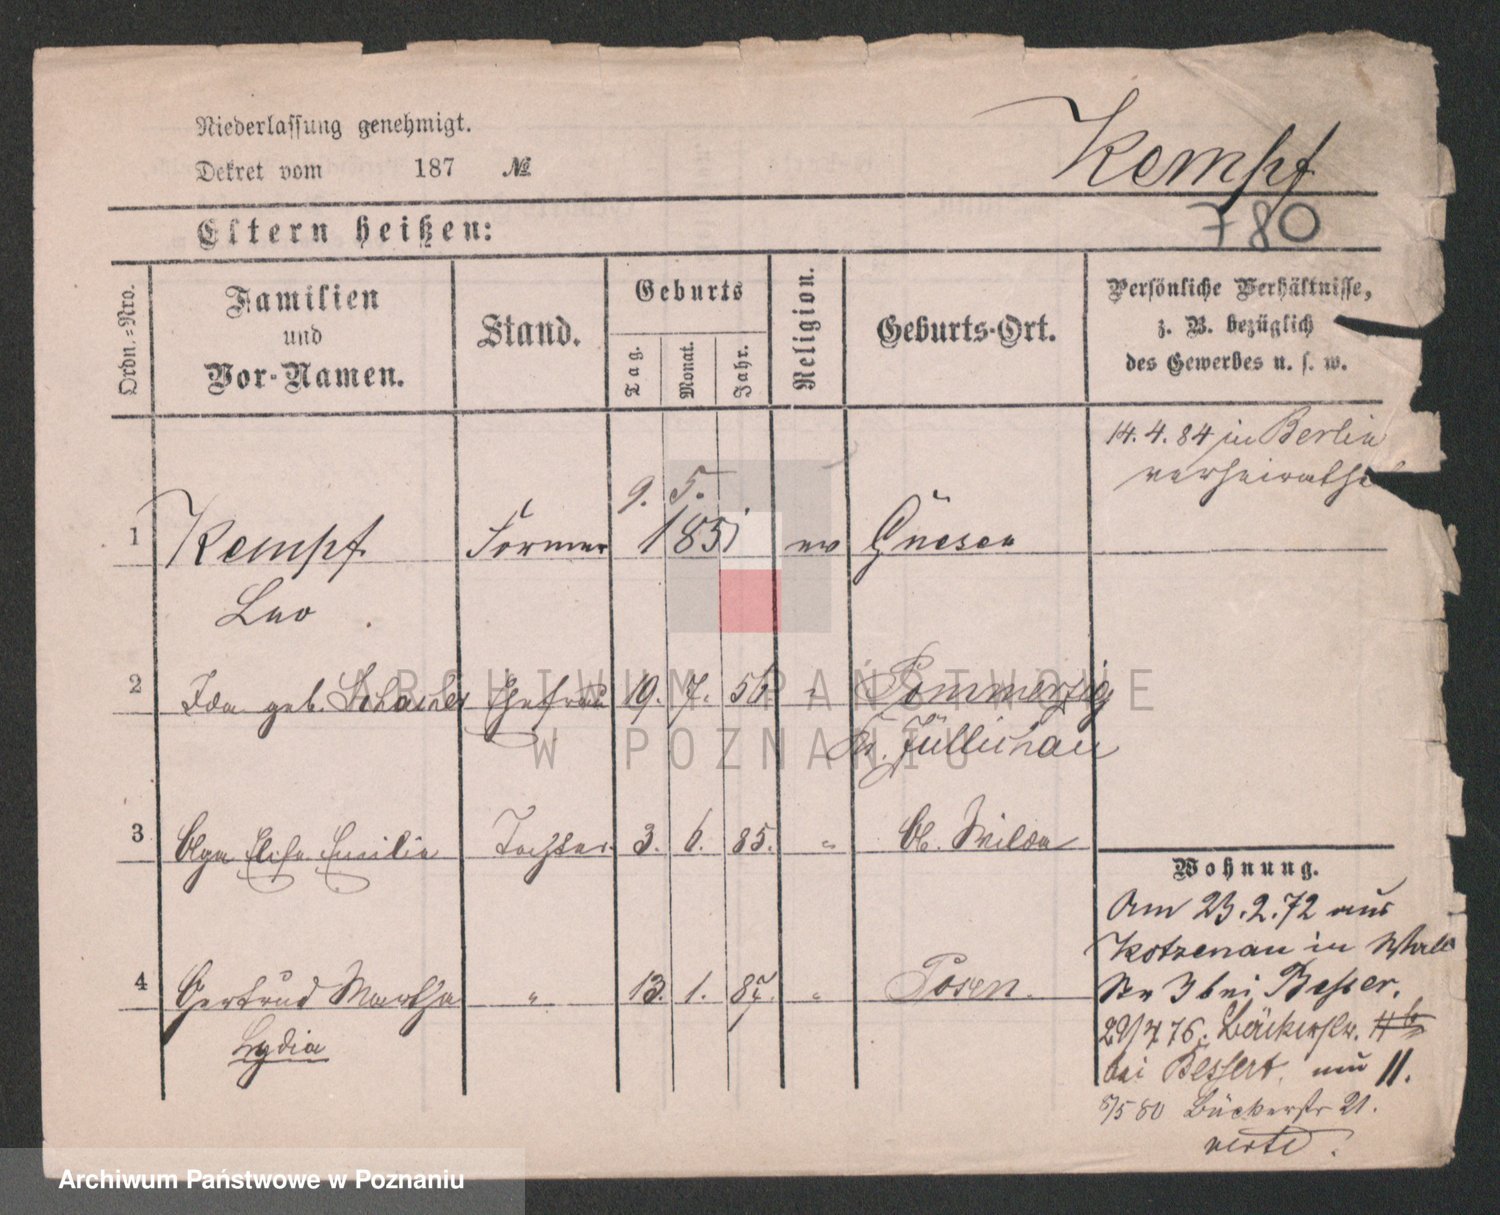 Niederlassung genehmigt.
Dekret vom 187 №
Kempf
780
Eltern heißen:
Ordn.-Nro.
Familien
und
Vor-Namen.
Stand.
Geburts
Tag.
Monat.
Jahr.
Religion.
Geburts-Ort.
Persönliche Verhältnisse,
z. B. bezüglich
des Gewerbes u. s. w.
14. 4. 84 in Berlin
verheirathe
9. 5.
1 Kempf Former 1851 ev Gnesen
Leo
2 Ida geb. Ehefrau 19. 7. 56. " Pommerzig
Kr. Züllichau
3 Olga Elise Emilie Tochter 3. 6. 85. " O. Wilda
4 Gertrud Martha " 13. 1. 87 " Posen.
Lydia
Wohnung.
Am 23.2.72 aus
Kotzenau in Wall
Str 3 bei Besser.
29/4 76. Bäckerstr.
bei Bessert. 11.
8/5 80 Bäckerstr 21.
verte.
ARCHIWUM PAŃSTWOWE
W POZNANIU
Archiwum Państwowe w Poznaniu